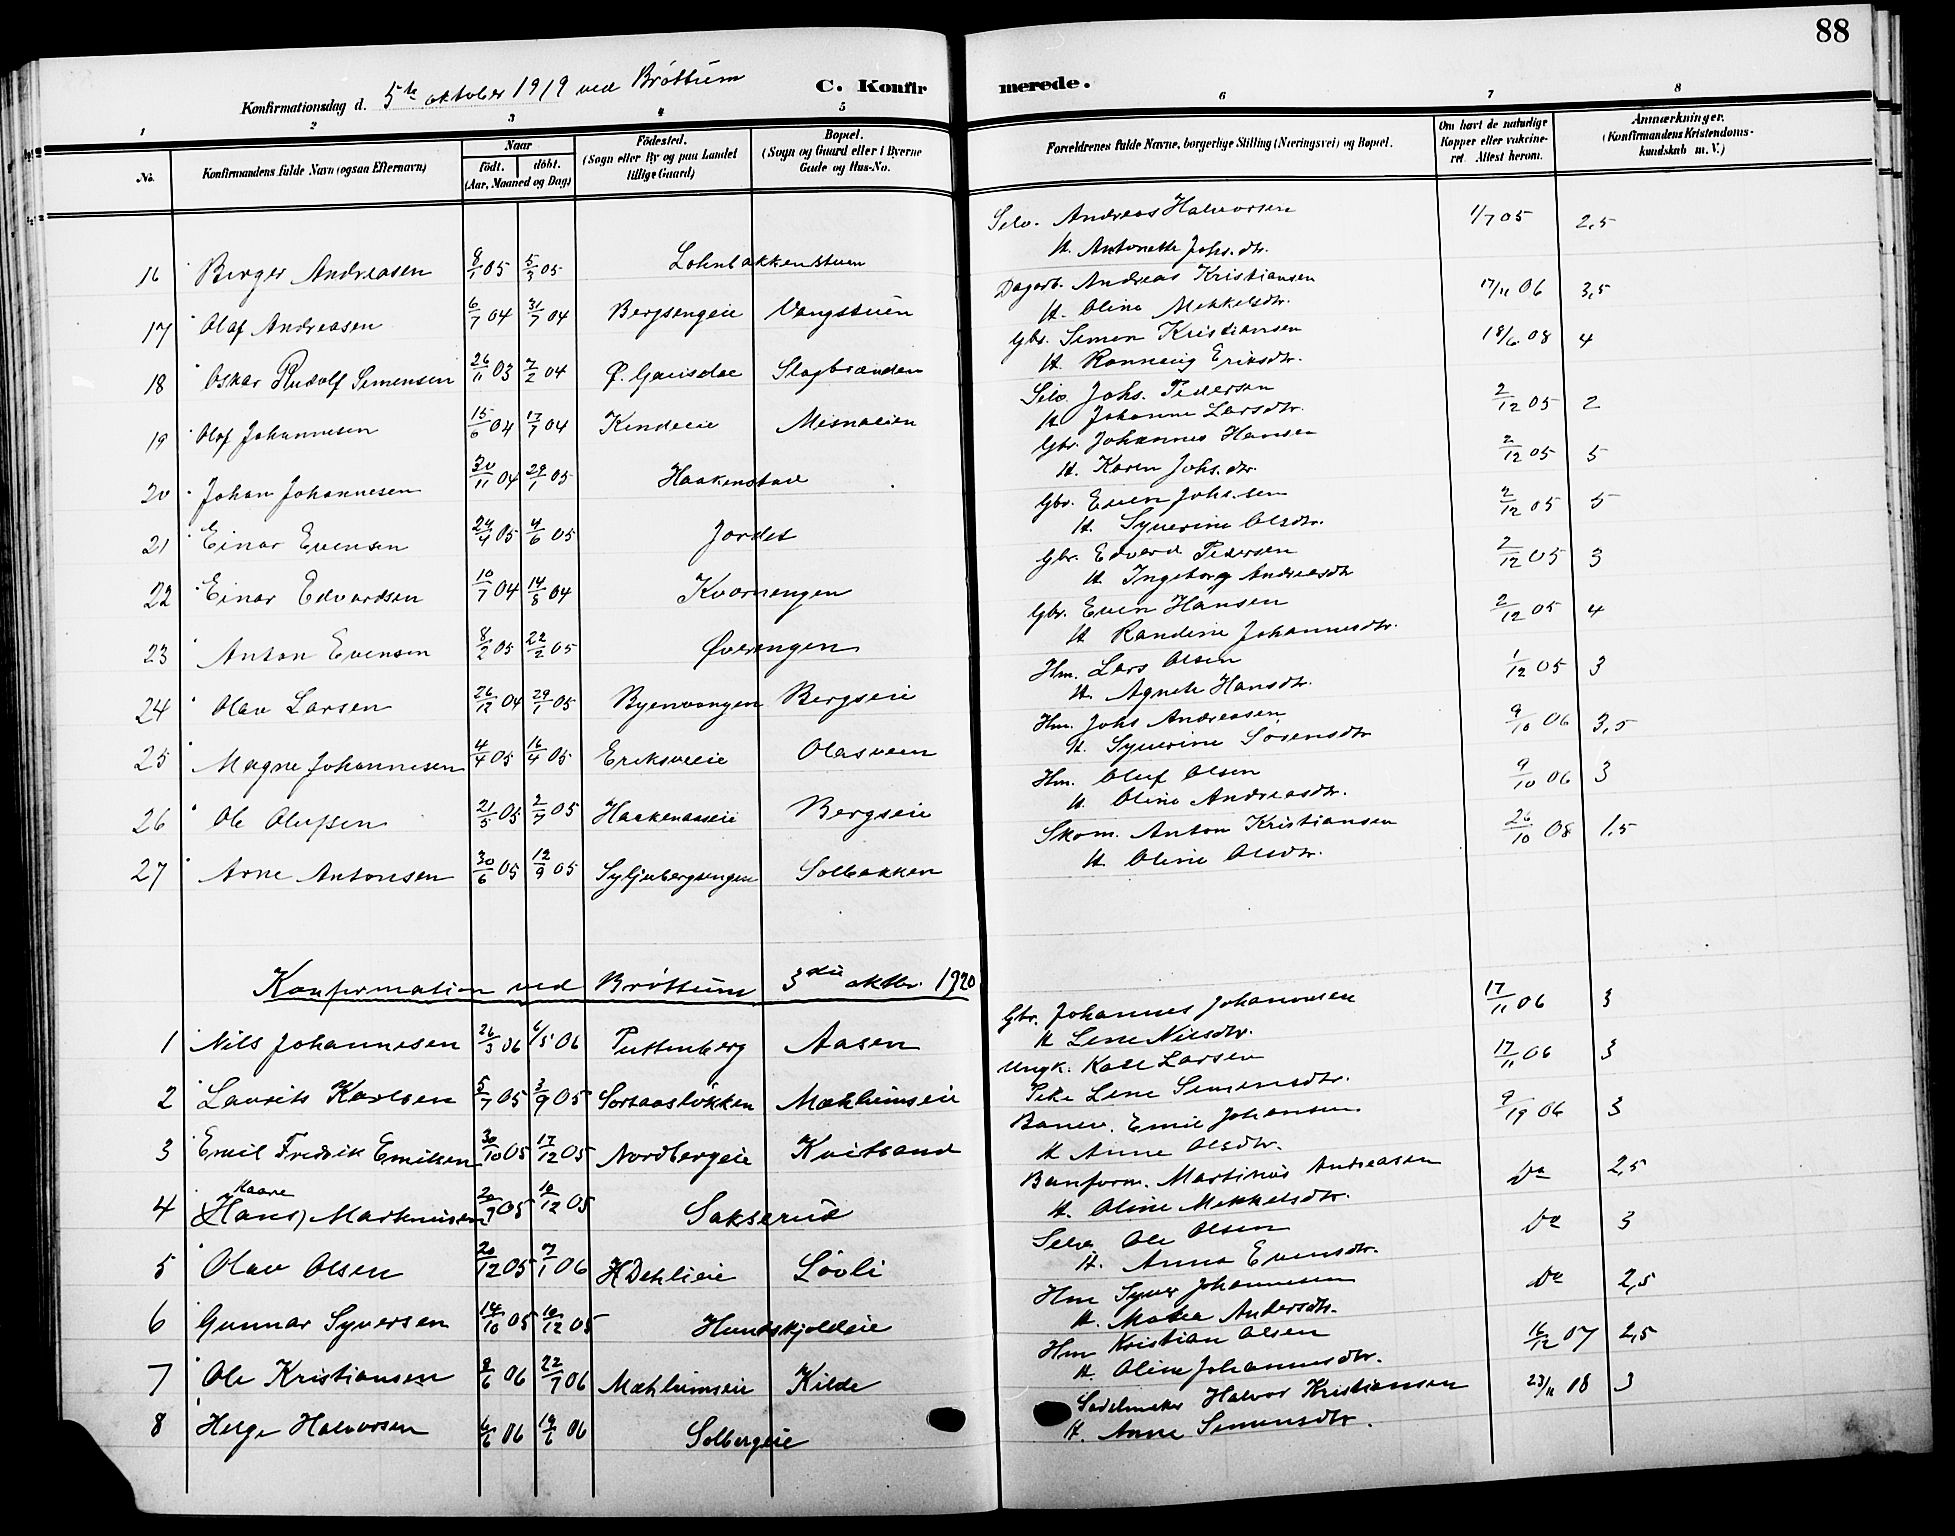 88
Konfirmationsdag d. 5te oktober 1919 ved Brøttum C. Konfirmerede.
1 2 3 4 5 6 7 8
No. Konfirmandens fulde Navn (ogsaa Efternavn) Naar født. døbt. (Aar, Maaned og Dag) Fødested. (Sogn eller By og paa Landet tillige Gaard) Bopæl. (Sogn og Gaard eller i Byerne Gade og Hus-No. Forældrenes fulde Navne, borgerlige Stilling (Næringsvei) og Bopæl. Om havt de naturlige Kopper eller vakcineret. Attest herom. Anmærkninger. (Konfirmandens Kristendomskundskab m. V.)
16 Birger Andreasen 8/1 05 5/3 05 Selv. Andreas Halvorsen 1/7 05 2,5
H. Antonette Johs.dtr.
17 Olaf Andreasen 6/7 04 31/7 04 Bergsengeie Vangstuen Dagarb. Andreas Kristiansen 17/11 06 3,5
H. Oline Mekkelsdtr.
18 Oskar Rudolf Simensen 26/11 03 7/2 04 Ø. Gausdal Slagbrænden Gbr. Simen Kristiansen 18/6 08 4
H. Ronnaug Eriksdtr.
19 Olaf Johannesen 15/6 04 17/7 04 Kindlieie Mesnalien Selv. Johs. Pedersen 2/12 05 2
H. Johanne Larsdtr.
20 Johan Johannesen 30/11 04 29/1 05 Haakenstad Gbr. Johannes Hansen 2/12 05 5
H. Karen Johs.dtr.
21 Einar Evensen 24/4 05 4/6 05 Jordet Gbr. Even Johs.sen 2/12 05 5
H. Syverine Olsdtr.
22 Einar Edvardsen 10/7 04 14/8 04 Kvarnengen Gbr. Edvard Pedersen 2/12 05 3
H. Ingeborg Andreasdtr
23 Anton Evensen 8/2 05 22/2 05 Øverengen Gbr. Even Hansen 2/12 05 4
H. Randine Johannesdtr.
24 Olav Larsen 26/12 04 29/1 05 Byenvangen Bergseie Hm. Lars Olsen 1/12 05 3
H. Agnete Hansdtr.
25 Magne Johannesen 4/4 05 16/4 05 Olasveen Hm. Johs Andreasen 9/10 06 3,5
H. Syverine
26 Ole Olufsen 21/5 05 2/7 05 Haakenaaseie Bergseie Hm. Oluf Olsen 9/10 06 3
H. Oline Andreasdtr.
27 Arne Antonsen 30/6 05 12/9 05 Syljubergsengen Solbakken Skom. Anton Kristiansen 26/10 08 1,5
H. Oline Olsdtr.
Konfirmation ved Brøttum 3die oktbr. 1920
1 Nils Johannesen 26/3 06 6/5 06 Puttenberg Aasen Gbr. Johannes Johannesen 17/11 06 3
H Lene Nilsdtr.
2 Laurits Karlsen 5/7 05 3/9 05 Sorsaasløkken Mæhlumseie Ungk. Karl Larsen 17/11 06 3
Pike Lene Simensdtr.
3 Emil Fredrik Emilsen 30/10 05 17/12 05 Nordbergeie Kvitsand Banev. Emil Johansen 9/19 06 3
H Anne Olsdtr.
4 Kaare (Hans) Martinusen 20/9 05 10/12 05 Sakserud Banform. Martinus Andreasen Do 2,5
H. Oline Mekkelsdtr.
5 Olav Olsen 20/12 05 7/1 06 H Dehlieie Løvli Selv. Ole Olsen Do 3
H. Anna Evensdtr.
6 Gunnar Syversen 14/10 05 10/12 05 Hundskjoldeie Hm Syver Johannesen Do 2,5
H. Matea Andersdtr.
7 Ole Kristiansen 9/6 06 22/7 06 Mæhlumseie Kilde Hm Kristian Olsen 16/12 07 2,5
H. Oline Johannesdtr.
8 Helge Halvorsen 6/6 06 19/6 06 Solbergeie Sadelmaker Halvor Kristiansen 23/11 18 3
H. Anne Simensdtr.